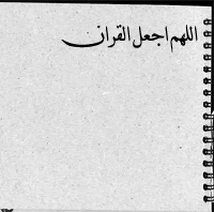 اللهم اجعل القران